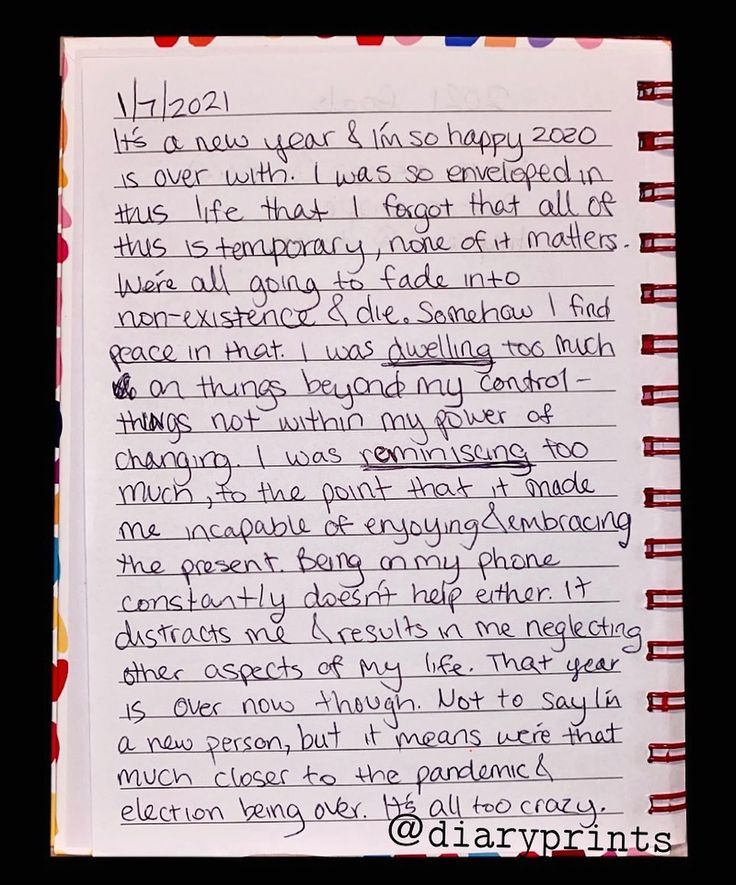 1/7/2021
It's a new year & I'm so happy 2020
is over with. I was so enveloped in
this life that I forgot that all of
this is temporary, none of it matters.
We're all going to fade into
non-existence & die. Somehow I find
peace in that. I was dwelling too much
on things beyond my control-
things not within my power of
changing. I was reminiscing too
much, to the point that it made
me incapable of enjoying & embracing
the present. Being on my phone
constantly doesn't help either. It
distracts me & results in me neglecting
other aspects of my life. That year
is over now though. Not to say I'm
a new person, but it means we're that
much closer to the pandemic &
election being over. It's all too crazy.
@diaryprints